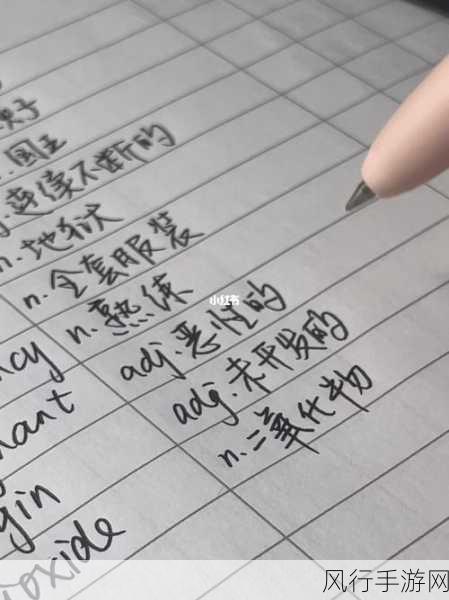 子
国王
连续不断的
n. 地狱
n. 全套服装
ncy n. 熟练
nant adj. 恶性的
gin adj. 未开发的
ioxide n. 二氧化物
小红书
风行手游网